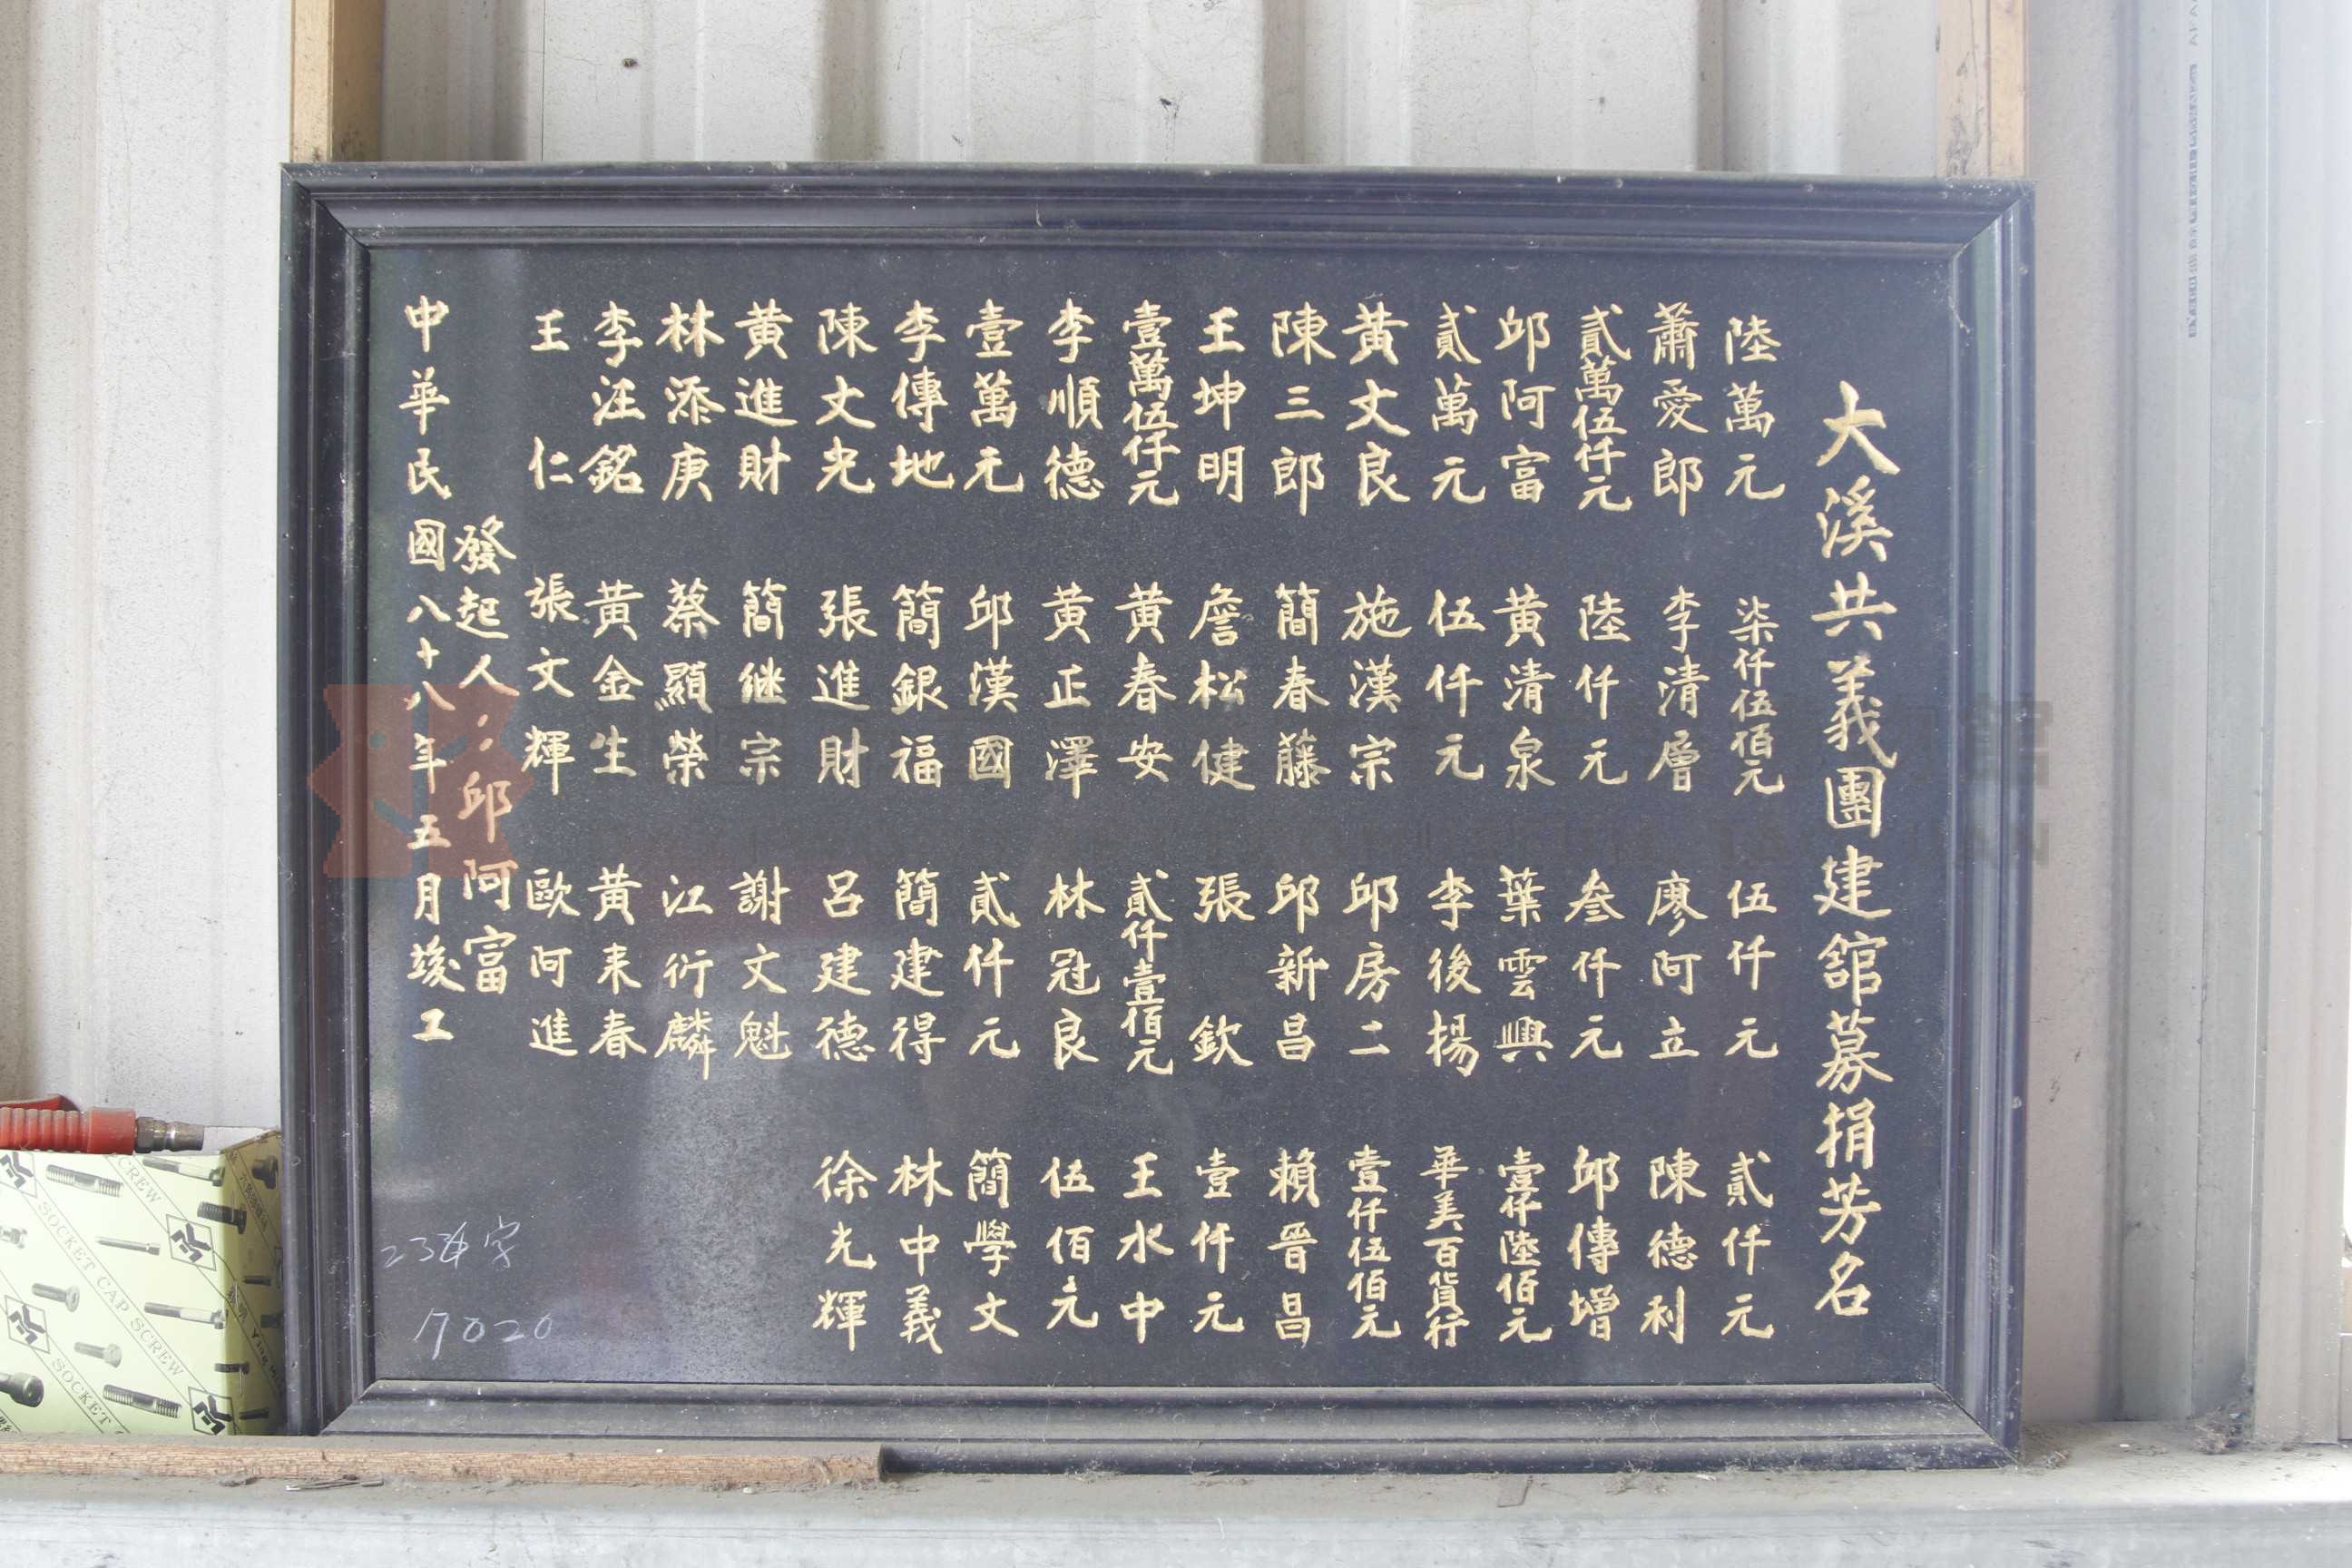 大溪共義團建舘募捐芳名
陸萬元
蕭愛郎
貳萬伍仟元
邱阿富
貳萬元
黃文良
陳三郎
王坤明
壹萬伍仟元
李順德
壹萬元
李傳地
陳文光
黃進財
林添庚
李汪銘
王仁
柒仟伍佰元
李清層
陸仟元
黃清泉
伍仟元
施漢宗
簡春藤
詹松健
黃春安
黃正澤
邱漢國
簡銀福
張進財
簡継宗
蔡顯榮
黃金生
張文輝
伍仟元
廖阿立
叁仟元
葉雲興
李後揚
邱房二
邱新昌
張欽
貳仟壹佰元
林冠良
貳仟元
簡建得
呂建德
謝文魁
江衍麟
黃来春
歐阿進
貳仟元
陳德利
邱傳增
壹仟陸佰元
華美百貨行
壹仟伍佰元
賴晉昌
壹仟元
王水中
伍佰元
簡學文
林中義
徐光輝
發起人：邱阿富
中華民國八十八年五月竣工
7020
SOCKET CAP SCREW
SOCKET